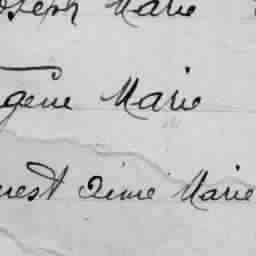 oseph Marie
gène Marie
nest Aimé Marie